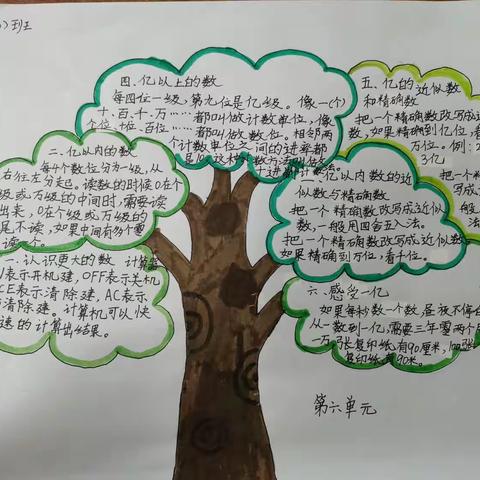 )班
四.亿以上的数
每四位一级,第九位是亿级。像一(个)
十、百、千、万……都叫做计数单位,像
个位、十位、百位……都叫做数位。相邻两
个计数单位之间的进率都
五、亿的近似数
和精确数
把一个精确数改写成近
数,如果精确到亿位,看
万位。例:2
3亿
把一个精
写成
般
法。
二.亿以内的数
每4个数位分为一级,从
右往左分起。读数的时候0在个
级或万级的中间时,需要读
出来,0在个级或万级的
尾不读,如果中间有多个零
读一个。
三.亿以内数的近
似数与精确数
把一个精确数改写成近似
数,一般用四舍五入法。
把一个精确数改写成近似数
如果精确到万位,看千位。
一.认识更大的数 计算器
表示开机建,OFF表示关机
CE表示清除建,AC表示
清除建。计算机可以快
速的计算出结果。
六.感受一亿
如果每秒数一个数,昼夜不停
从一数到一亿,需要三年零两个
一万张复印纸,有90厘米,100张
复印纸有90米。
第六单元